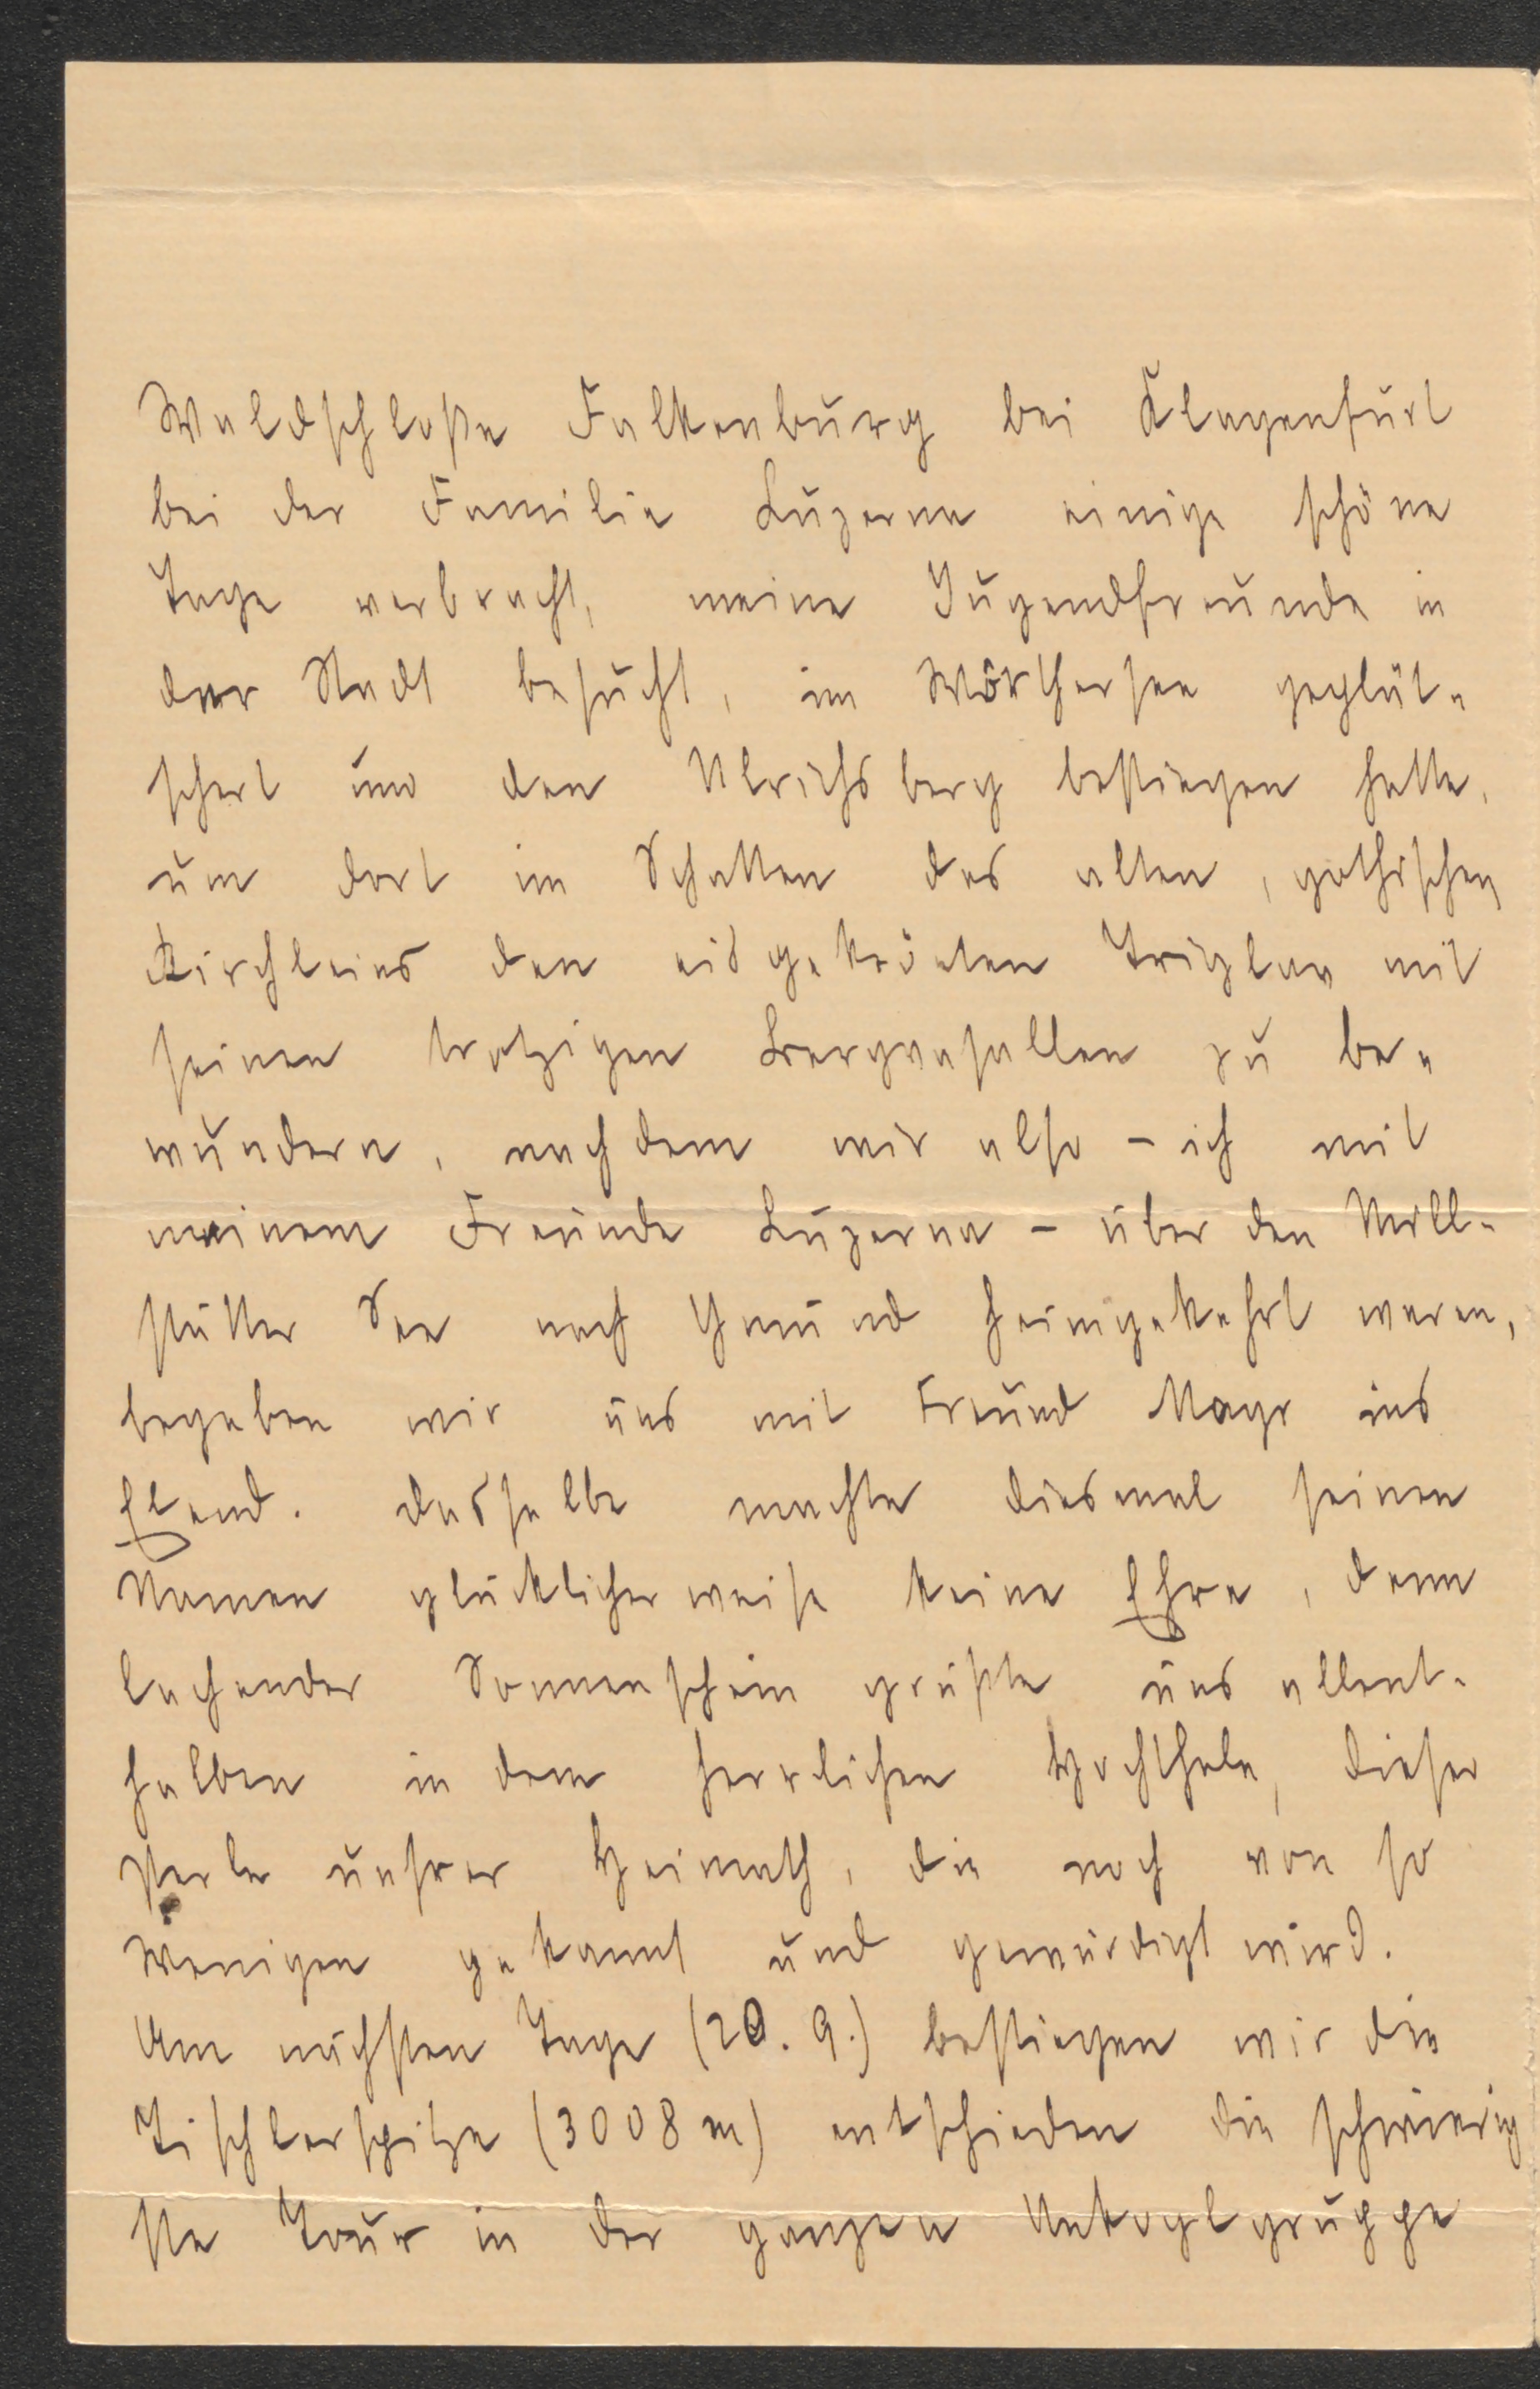 Waldschloße Falkenburg bei Klagenfurt
bei der Familie Luzerna einige schöne
Tage verbracht, meine Jugendfreunde in
der Stadt besucht, im Wörthersee geplät-
schert und den Ulrichsberg bestiegen hatte,
um dort im Schatten des alten, gothischen
Kirchleins den eisgekrönten Triglav mit
seinen trotzigen Bergvasallen zu be-
wundern, nachdem wir also - ich mit
meinem Freunde Luzerna - über den Mill-
stätter See nach Gmünd heimgekehrt waren,
begaben wir uns mit Freund Mayr ins
Elend. Dasselbe machte diesmal seinen
Namen glücklicherweise keine Ehre, denn
lachender Sonnenschein grüßte uns allent-
halben in dem herrlichen Hochthale, dieser
Perle unsrer Heimath, die noch von so
Wenigen gekannt und gewürdigt wird.
Am nächsten Tage (20. 9.) bestiegen wir die
Tischlerspitze (3008 m) entschieden die schwierig
ste Tour in der ganzen Ankoglgruppe